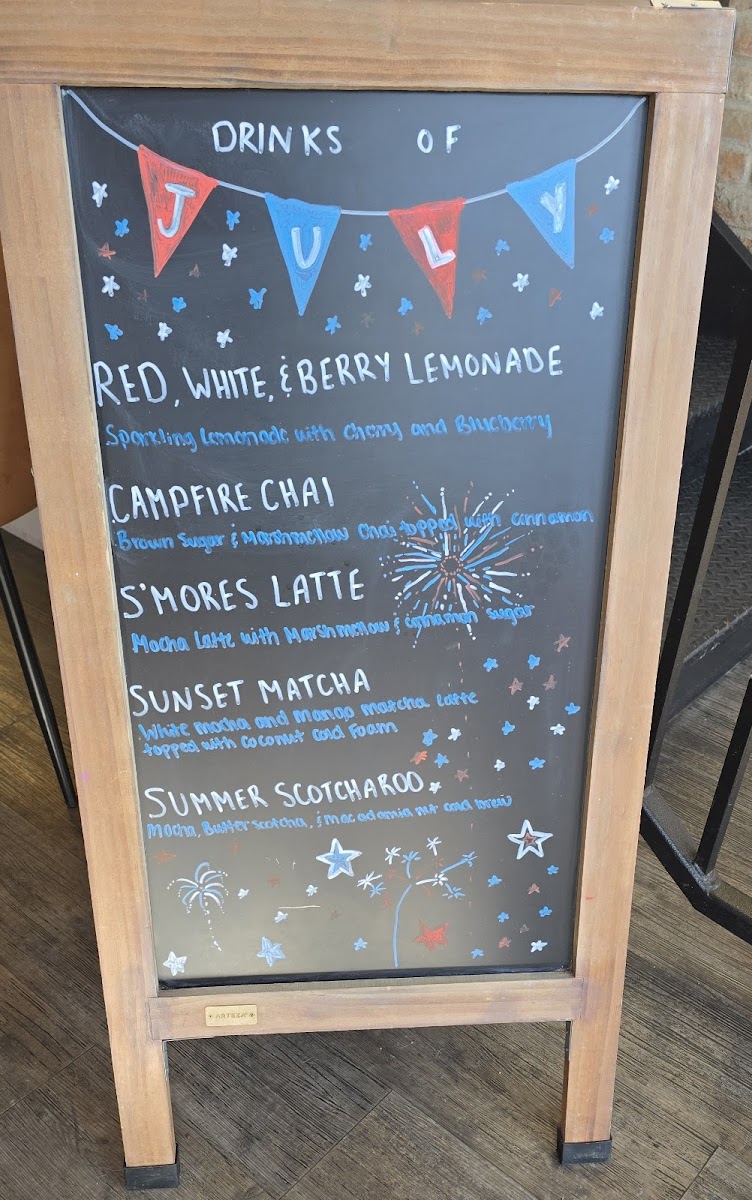 DRINKS OF
JULY
RED, WHITE, & BERRY LEMONADE
Sparkling Lemonade with Cherry and Blueberry
CAMPFIRE CHAI
Brown Sugar & Marshmellow Chai topped with cinnamon
S'MORES LATTE
Mocha Latte with Marshmellow & cinnamon sugar
SUNSET MATCHA
White mocha and Mango matcha Latte
topped with Coconut Cold Foam
SUMMER SCOTCHAROO
Mocha, Butterscotcha, & macadamia nut cold brew
ARTEZA